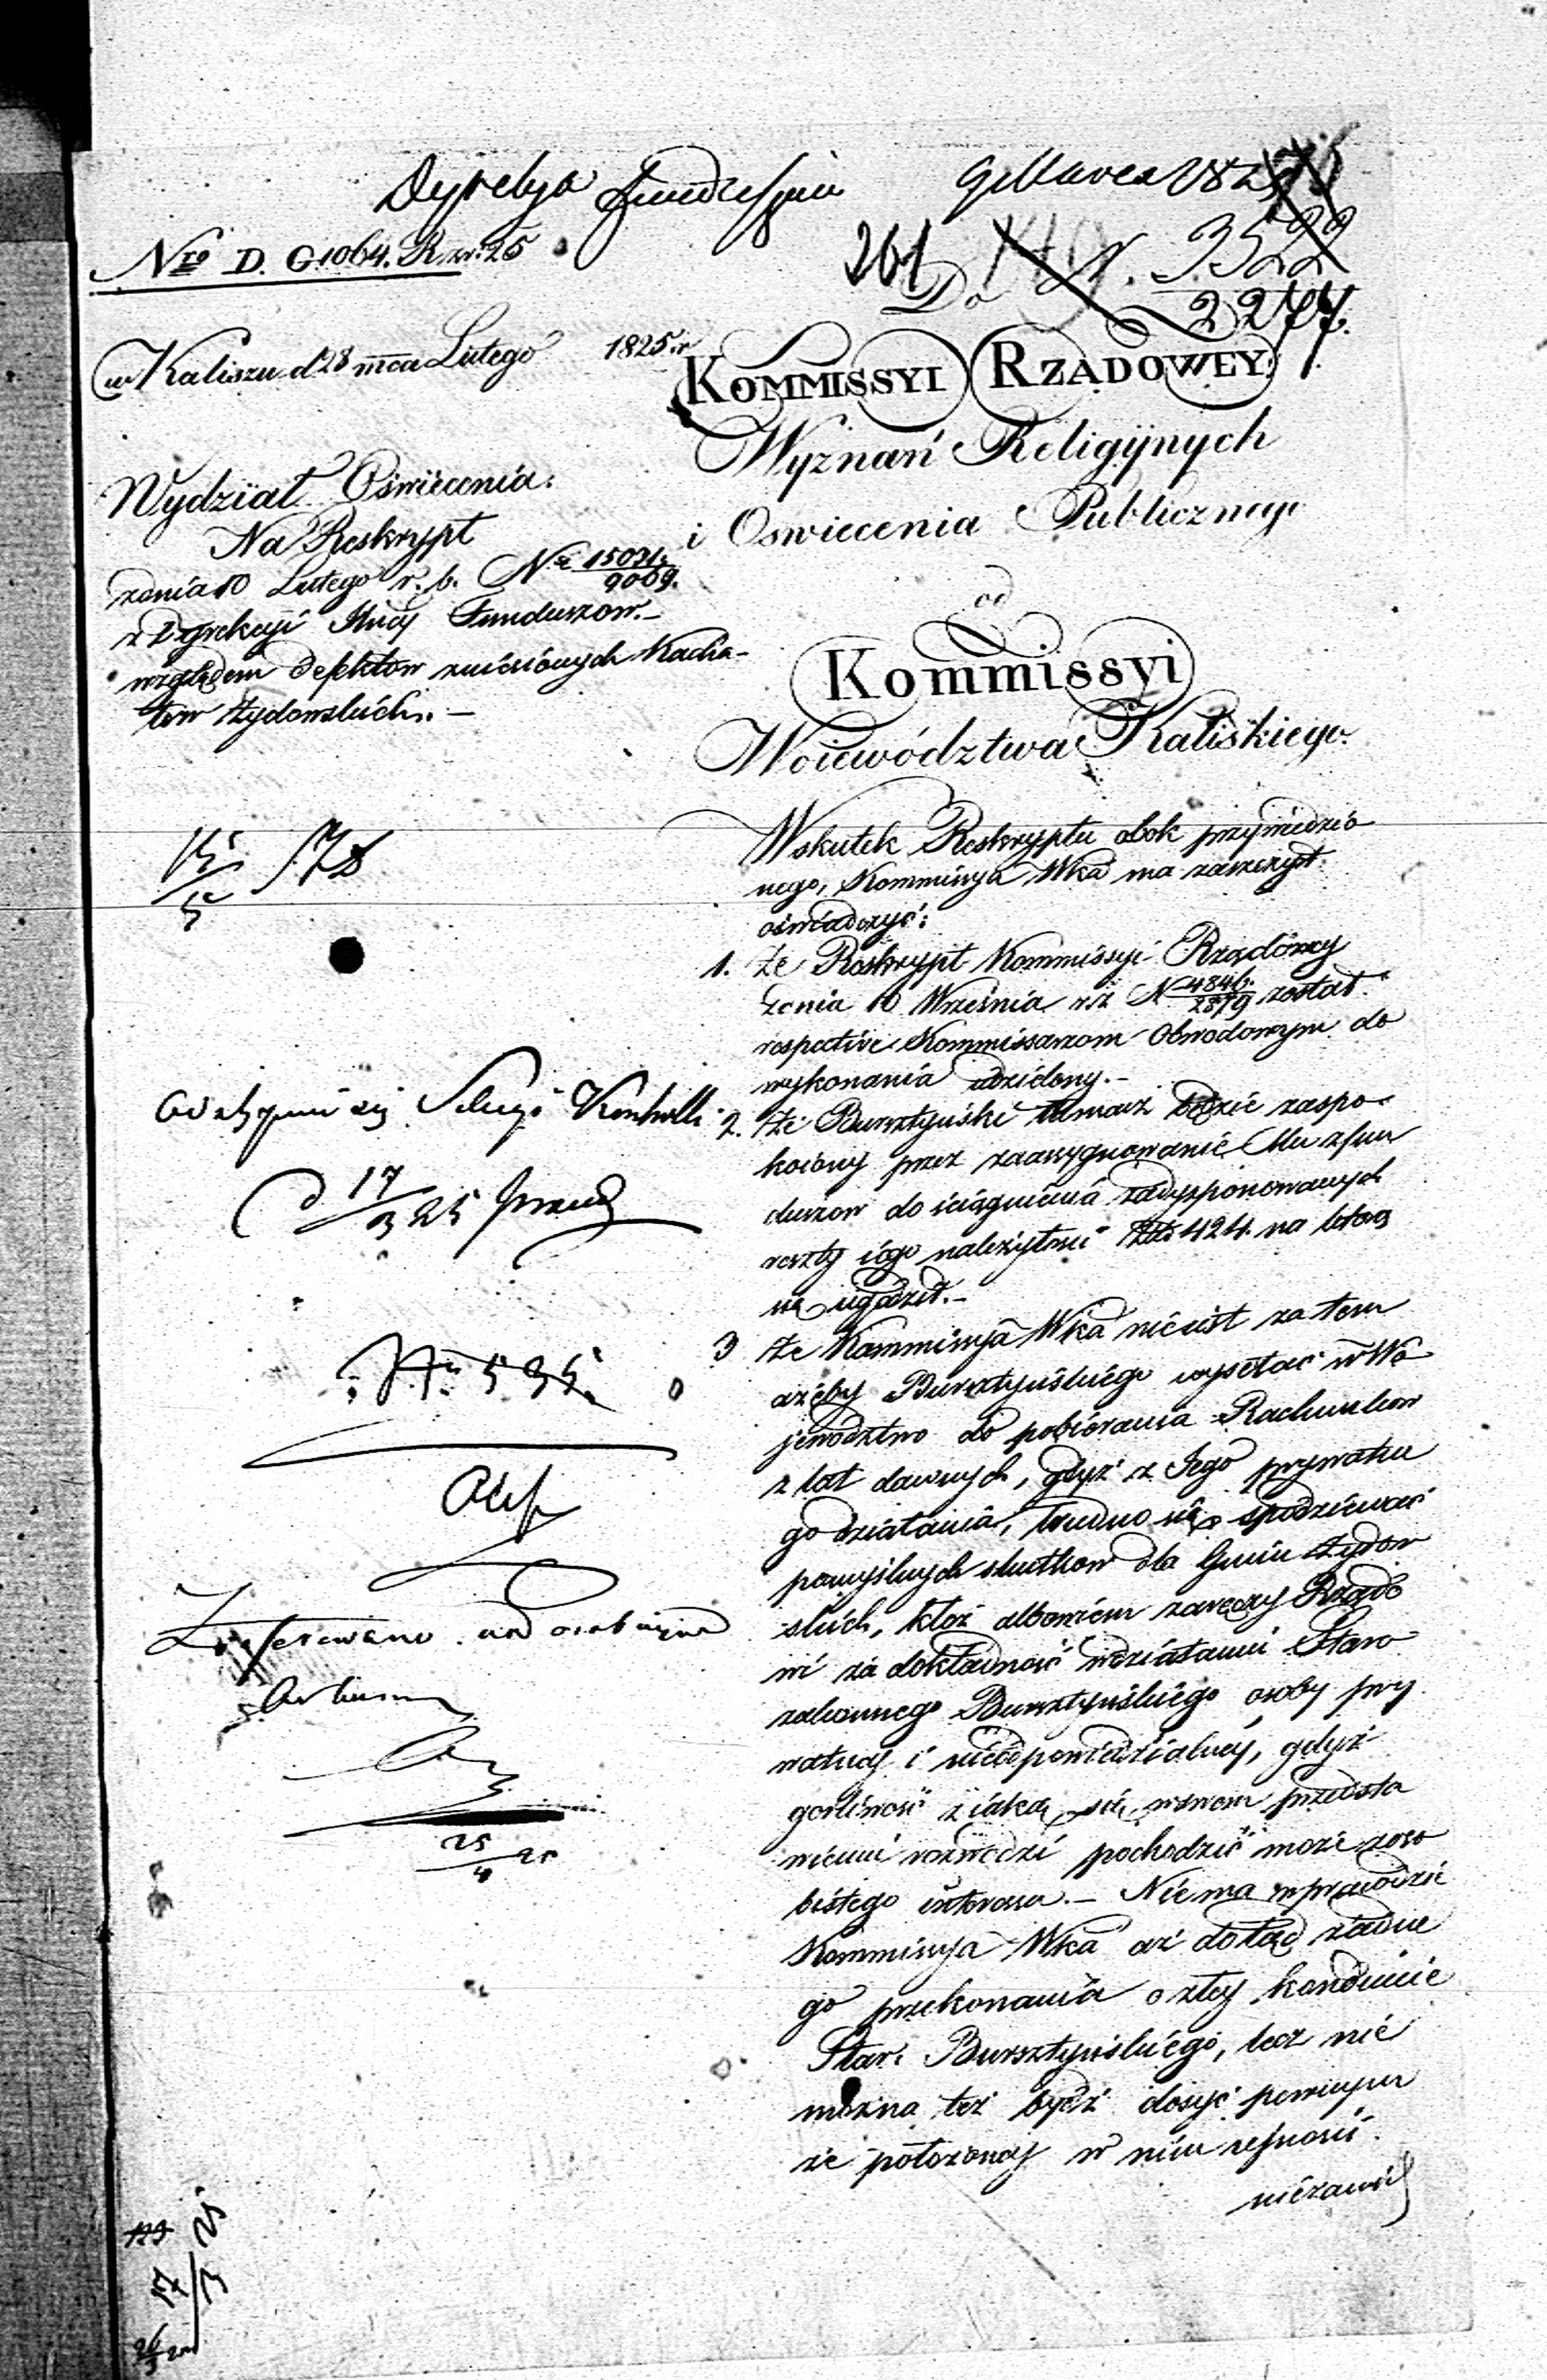 Dyrekcya Funduszów 9 Marca 1825
Nro D. O. 1064. R. w. 25
261 N. 3522
2277.
Do
w Kaliszu d. 28 mca Lutego 1825. r.
KOMMISSYI RZADOWEY
Wyznań Religiynych
i Oswiecenia Publicznego
od
Kommissyi
Woiewództwa Kaliskiego.
Wydział Oświecenia.
Na Reskrypt
z dnia 10 Lutego r. b. No 15031./9069.
z Dyrekcyi Funduszow.
względem defektow zniesionych Kacha-
łow żydowskich. —
Wskutek Reskryptu obok przywiedzio
nego, Kommissya Wka ma zaszczyt
oświadczyć:
1. że Reskrypt Kommissyi Rządowey
z dnia 10 Września r. z. N 4846./2879 został
respective Kommissarzom Obwodowym do
wykonania udzielony. —
2. że Bursztyński tłumacz będzie zaspo-
koiony przez zaasygnowanie Mu z fun
duszow do ściągnienia zadysponowanych
reszty iego należytości Złt 424. na które
się ugodził. —
3 że Kommissya Wka nie iest za tem
ażeby Bursztyńskiego wysełać w Wo
jewództwo do pobierania Rachunkow
z lat dawnych, gdyż z Jego prywatne
go działania, trudno się spodziewać
pomyślnych skutkow dla Gmin żydow
skich, któż albowiem zaręczy Rządo
wi za dokładność w działaniu Staro
zakonnego Bursztyńskiego osoby pry
watney i nieodpowiedzialney, gdyż
gorliwość z iaką się w swem przedsta
wieniu rozwodzi pochodzić może z oso
bistego interessu. — Nie ma wprawdzie
Kommissya Wka aż dotąd żadne
go przekonania o złey konduicie
Star. Bursztyńskiego, lecz nie
można też bydź dosyć pewnym
że położoney w nim ufności
niezawie
178
Odstąpić się Sekcyi Kontrolli
d 17/3 25
No 535.
25/4 25
123
17/3 25
26/3 25